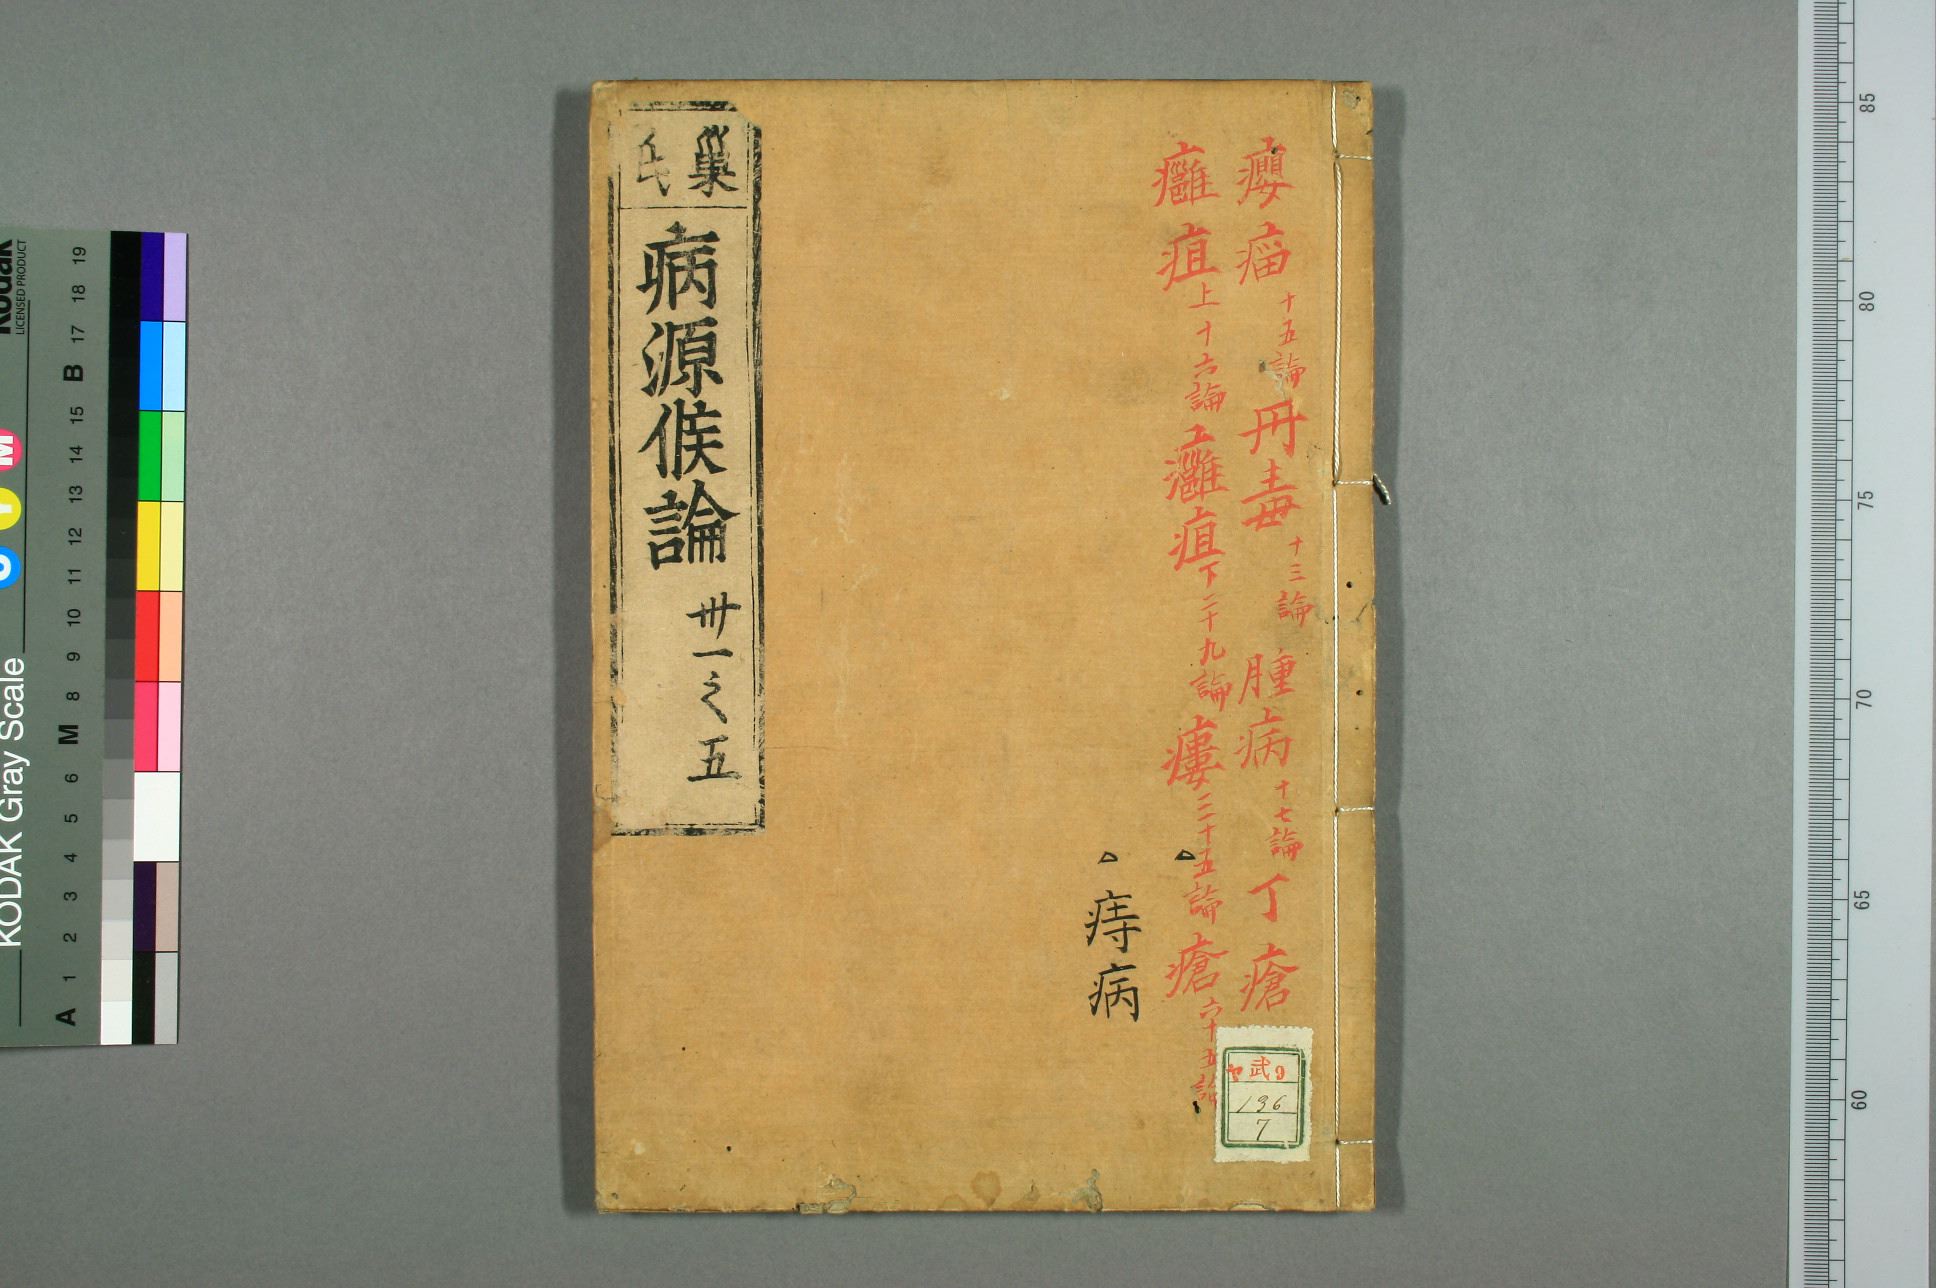 癭瘤十五論丹毒十三論腫病十七論丁瘡
癰疽上十六論癰疽下二十九論瘻三十五論瘡六十五論
痔病
巢氏
病源候論 卅一之五
武
136
7
Kodak
LICENSED PRODUCT
KODAK Gray Scale
C Y M
A 1 2 3 4 5 6 M 8 9 10 11 12 13 14 15 B 17 18 19
85
80
75
70
65
60